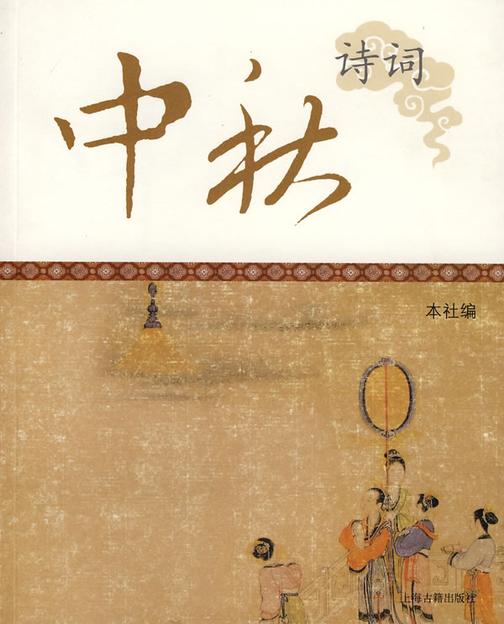 中秋
诗词
本社编
上海古籍出版社